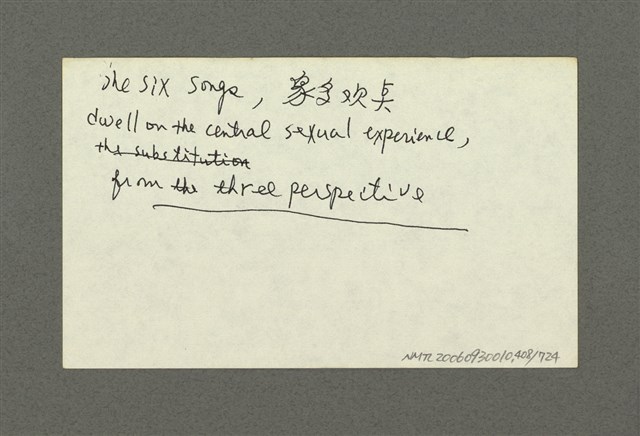 The six songs, 象多欢喜
dwell on the central sexual experience,
the substitution
from the three perspective
NMTL20060930010,408/724